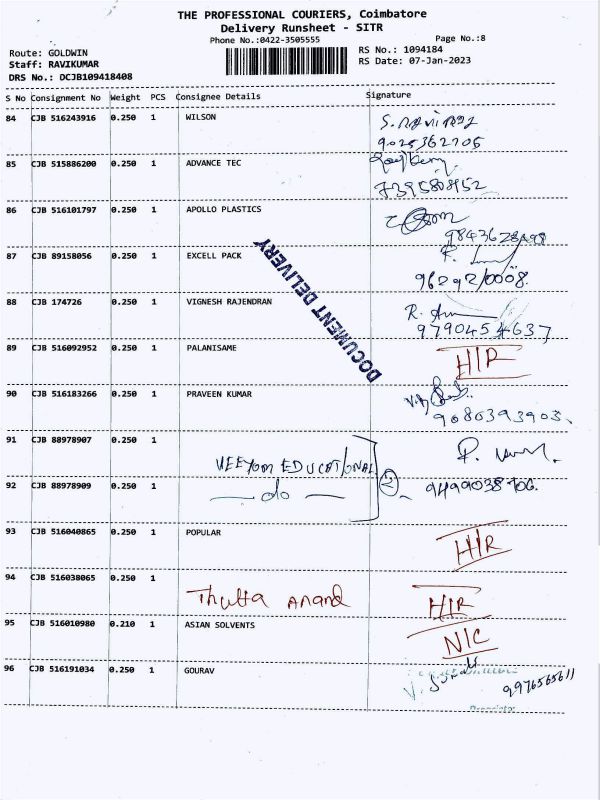 THE PROFESSIONAL COURIERS, Coimbatore
Delivery Runsheet - SITR
Phone No.:0422-3505555
Page No.:8
Route: GOLDWIN
RS No.: 1094184
Staff: RAVIKUMAR
RS Date: 07-Jan-2023
DRS No.: DCJB109418408
S No Consignment No Weight PCS Consignee Details Signature
84 CJB 516243916 0.250 1 WILSON
9025362705
85 CJB 515886200 0.250 1 ADVANCE TEC
7395808952
86 CJB 516101797 0.250 1 APOLLO PLASTICS
87 CJB 89158056 0.250 1 EXCELL PACK
DOCUMENT DELIVERY
88 CJB 174726 0.250 1 VIGNESH RAJENDRAN
9790454637
89 CJB 516092952 0.250 1 PALANISAME H/R
90 CJB 516183266 0.250 1 PRAVEEN KUMAR
9080393903
91 CJB 88978907 0.250 1
VEEYOM EDUCATIONAL
92 CJB 88978909 0.250 1 do 2
93 CJB 516040865 0.250 1 POPULAR H/R
94 CJB 516038065 0.250 1
Thulta Anand H/R
95 CJB 516010980 0.210 1 ASIAN SOLVENTS N/C
96 CJB 516191034 0.250 1 GOURAV
9976565611